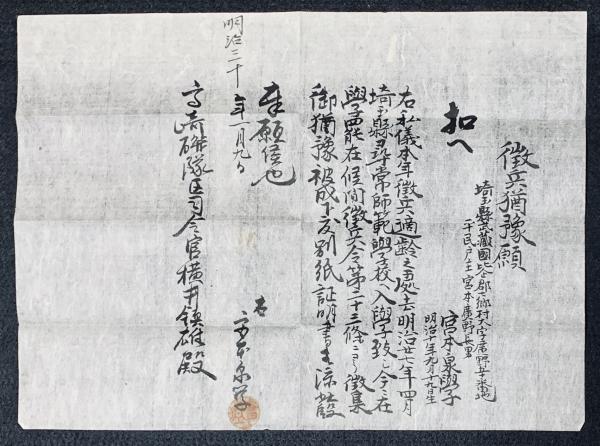 徴兵猶豫願
埼玉縣武藏國比企郡 郷村大字廣野 番地
平民戸主宮本廣野長男
宮本泉學
明治十年九月十九日生
扣へ
右私儀本年徴兵適齡之處去明治廿七年四月
埼玉縣尋常師範學校ヘ入學致シ今ニ在
學罷在候間徴兵令第二十三條ニヨリ徴集
御猶豫被成下度別紙証明書相添此段
奉願候也
明治三十年一月九日
右
高崎聯隊區司令官横井鎮雄殿